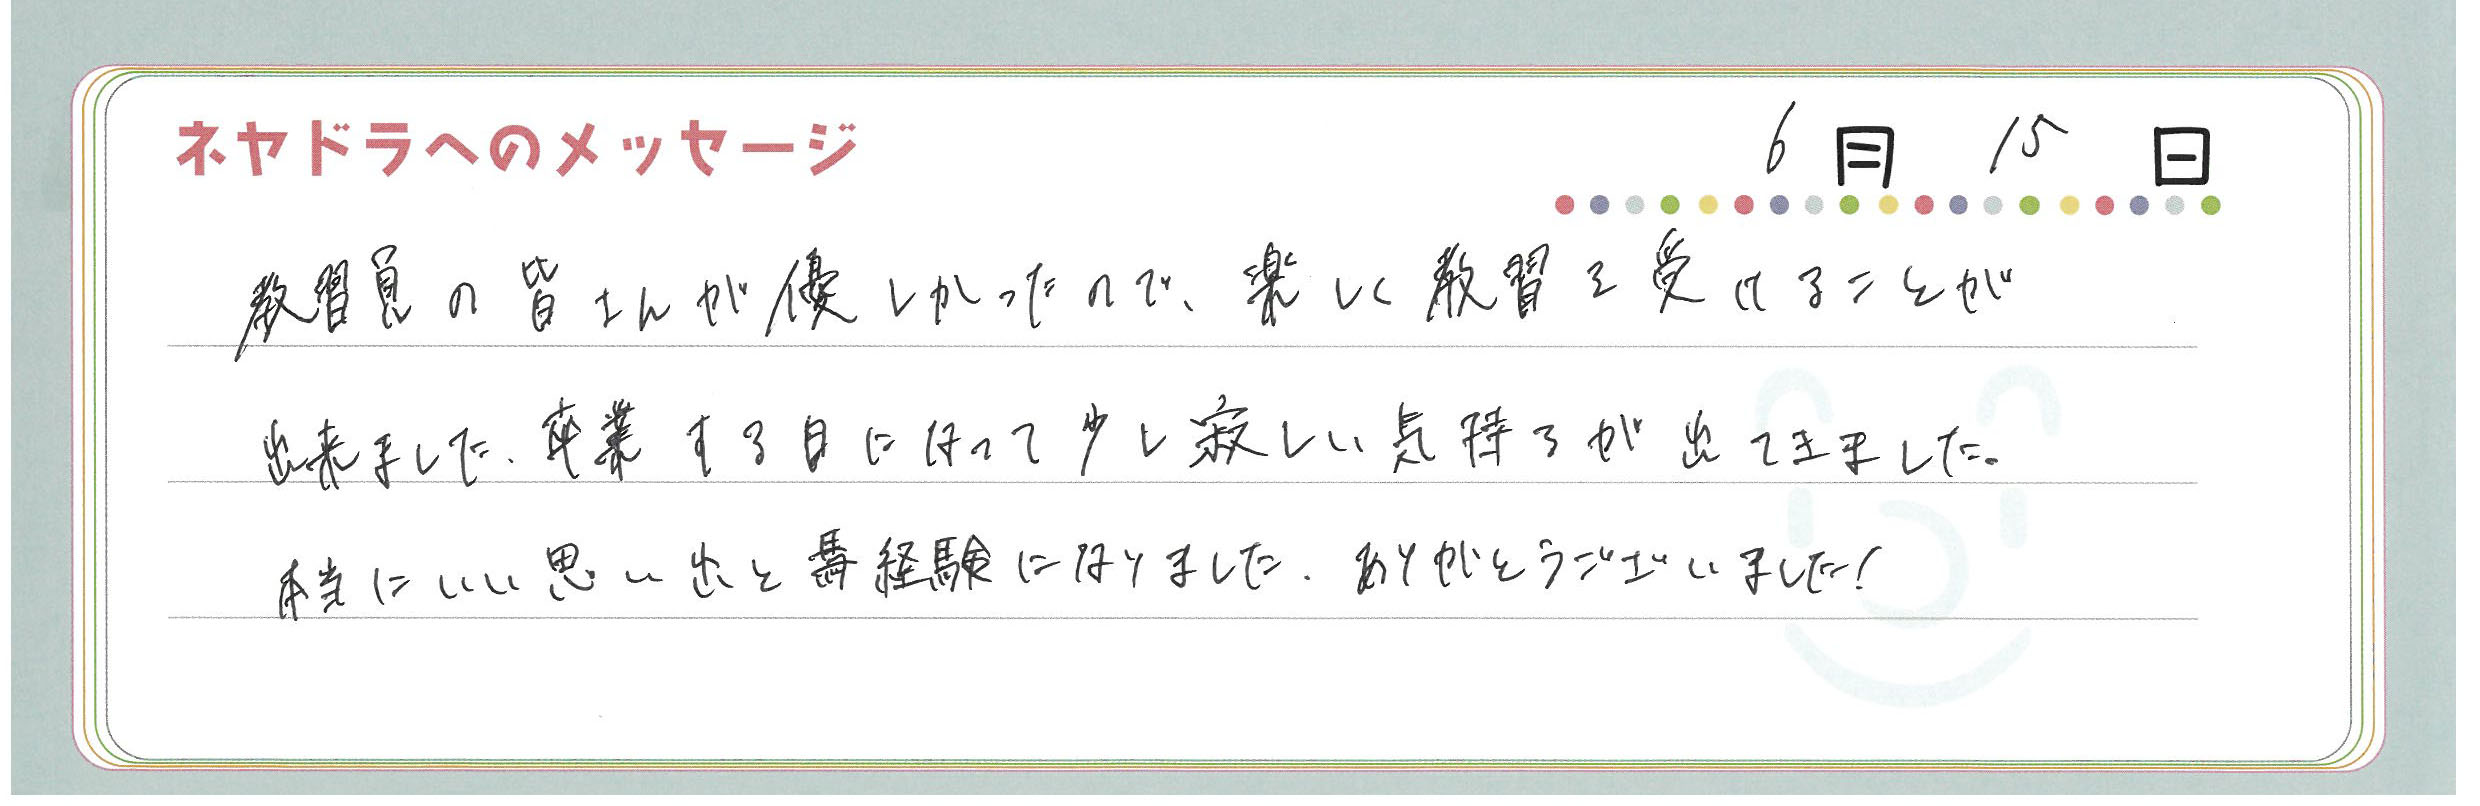 ネヤドラへのメッセージ
6月 15日
教習員の皆さんが優しかったので、楽しく教習を受けることが
出来ました、卒業する日になって少し寂しい気持ちが出てきました。
本当にいい思い出と 経験になりました. ありがとうございました!